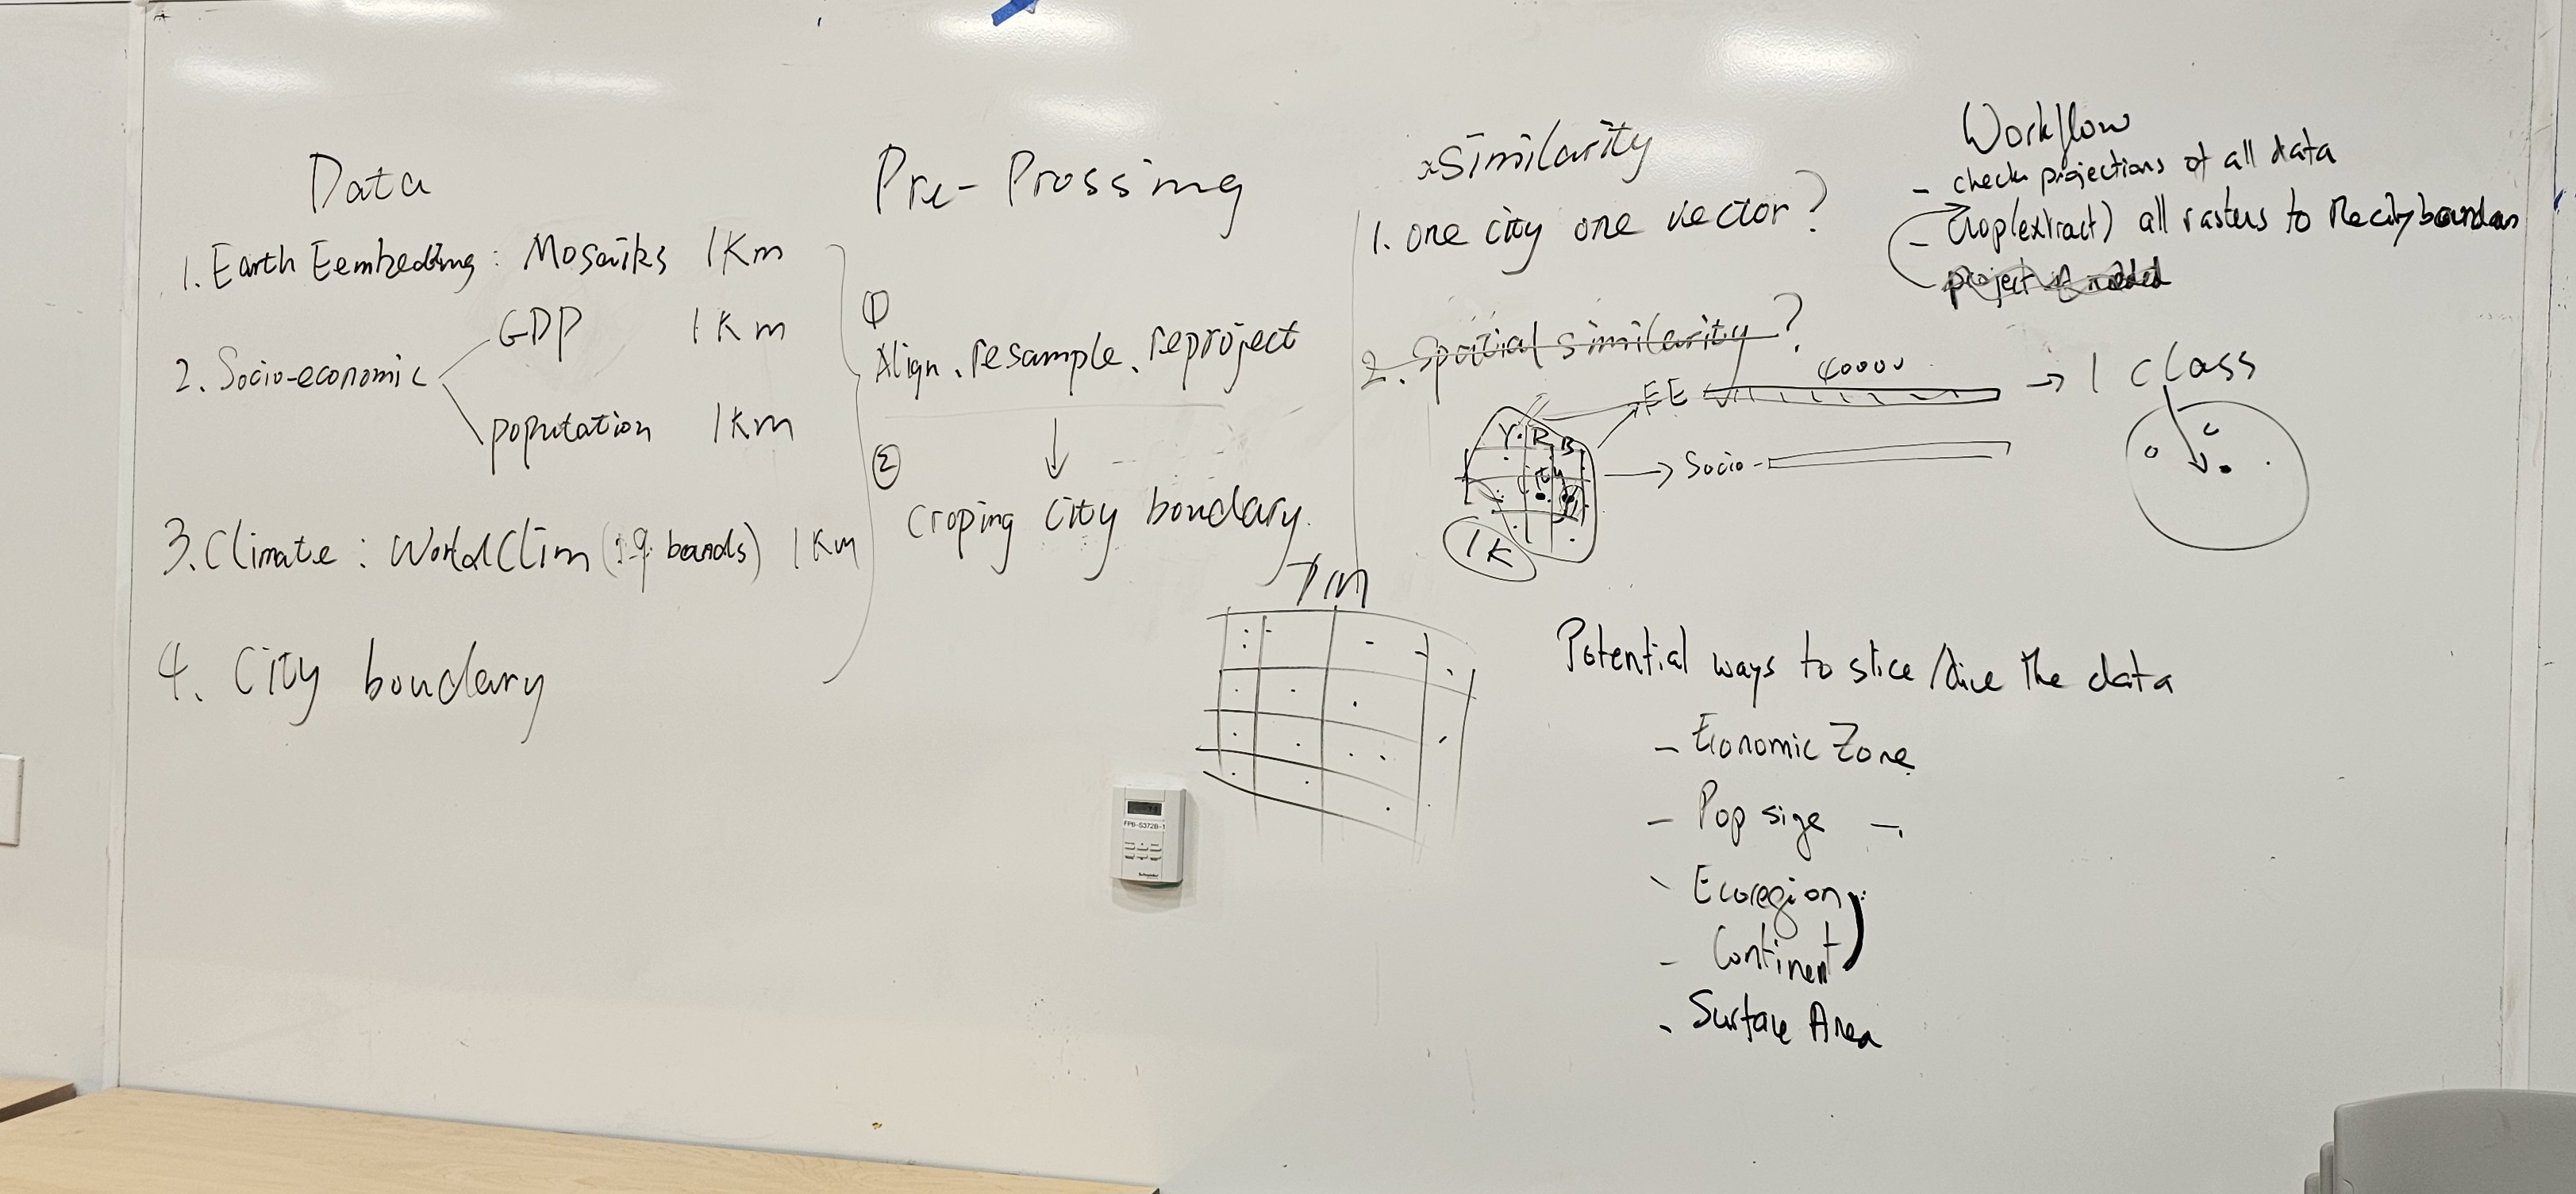 Data
1. Earth Eembedding : Mosaiks 1Km
GDP 1Km
2. Socio-economic
population 1Km
3. Climate : WorldClim (19 bands) 1Km
4. City boundary
Pre-Prossing
①
Align、resample、reproject
②
Croping City boundary.
1m
Similarity
1. one city one vector?
2. Spatial similarity?
EE 40000 → 1 class
Y. R B
City
→ Socio-
1K
Workflow
- check projections of all data
- Crop(extract) all rasters to the city boundary
project if needed
Potential ways to slice/dice the data
- Economic Zone
- Pop size -
- Ecoregion
- Continent
- Surface Area
FPB-S372B-1
Schneider